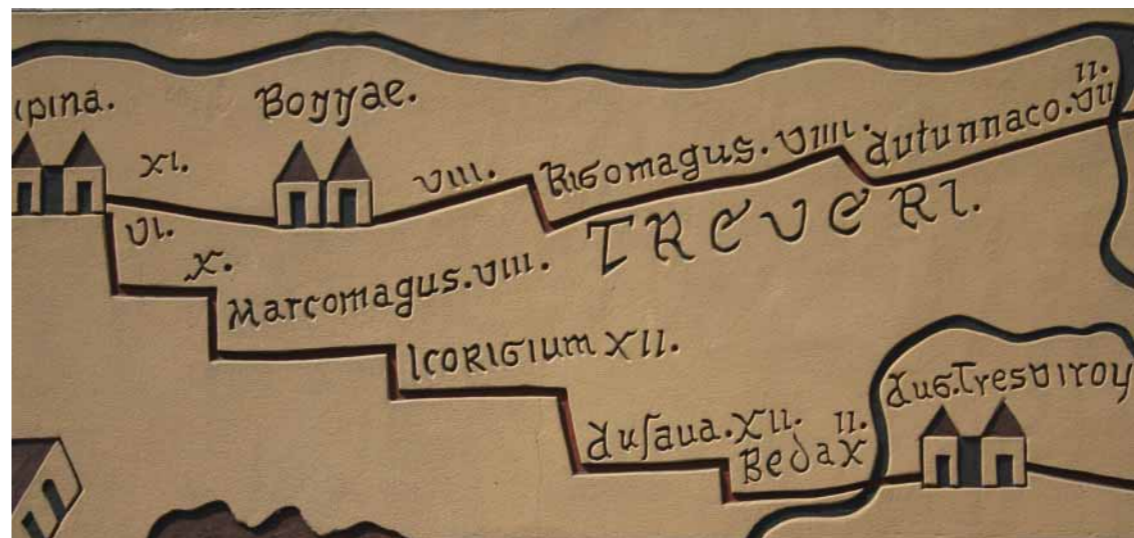 ipina.
Bonnae.
XI.
VIII.
Rigomagus. VIIII.
Autunnaco. VII
II.
VI.
X.
TREVERI.
Marcomagus. VIII.
Icorigium XII.
Ausaua. XII.
II.
Beda X
Aug. Tresviroy